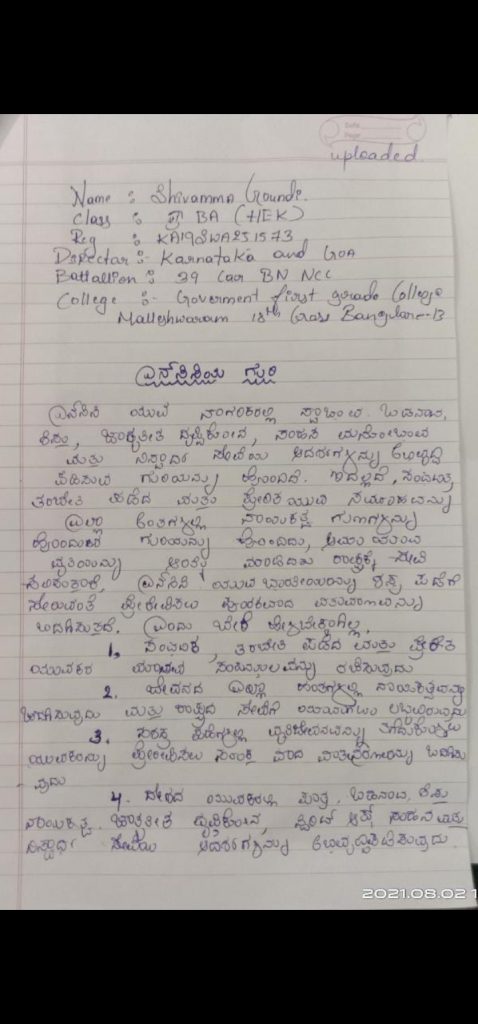 Date
Page
uploaded.
Name : Shivamma Goundi.
Class : ಪ್ರ BA (HEK)
Reg : KA19SWA251573
Directar :- Karnataka and GOA
Battallion : 39 Car BN NCC
College :- Goverment first grade College
Malleshwaram 18th Cross Bangular-13
ಎನ್‌ಸಿಸಿಯ ಗುರಿ
ಎನ್‌ಸಿಸಿ ಯುವ ನಾಗರಿಕರಲ್ಲಿ
ಶಿಸ್ತು, ಜಾತ್ಯತೀತ ದೃಷ್ಟಿಕೋನ, ಸಾಹಸ ಮನೋಭಾವ
ಮತ್ತು ನಿಸ್ವಾರ್ಥ ಸೇವೆಯ ಆದರ್ಶಗಳನ್ನು
ಪಡಿಸುವ ಗುರಿಯನ್ನು ಹೊಂದಿದೆ. ಇದಲ್ಲದೆ, ಸಂಘಟಿತ
ತರಬೇತಿ ಪಡೆದ ಮತ್ತು ಪ್ರೇರಿತ ಯುವ
ಎಲ್ಲಾ ಹಂತಗಳಲ್ಲಿ ನಾಯಕತ್ವ ಗುಣಗಳನ್ನು
ಹೊಂದುವ ಗುರಿಯನ್ನು ಹೊಂದಿದು,
ವೃತಿಯನ್ನು ಆಯ್ಕೆ ಮಾಡಿದರು ರಾಷ್ಟ್ರಕ್ಕೆ ಸೇವೆ
ಎನ್‌ಸಿಸಿ ಯುವ ಭಾರತೀಯರನ್ನು ಶಸ್ತ್ರ ಪಡೆಗೆ
ಸೇರುವಂತೆ ಪ್ರೇರೇಪಿಸಲು ಪೂರಕವಾದ ವಾತಾವರಣವನ್ನು
ಒದಗಿಸುತ್ತದೆ. ಎಂದು ಬೇರೆ ಹೇಳಬೇಕಾಗಿಲ್ಲ.
1. ಸಂಘಟಿತ, ತರಬೇತಿ ಪಡೆದ ಮತ್ತು ಪ್ರೇರಿತ
ಯುವಕರ ಮಾನವ ಸಂಪನ್ಮೂಲವನ್ನು ರಚಿಸುವುದು
2. ಜೀವನದ ಎಲ್ಲಾ ಹಂತಗಳಲ್ಲಿ ನಾಯಕತ್ವವನ್ನು
ಒದಗಿಸುವುದು ಮತ್ತು ರಾಷ್ಟ್ರದ ಸೇವೆಗೆ ಯಾವಾಗಲೂ ಲಭ್ಯವಿರುವುದು
3. ಸಶಸ್ತ್ರ ಪಡೆಗಳಲ್ಲಿ ವೃತ್ತಿಜೀವನವನ್ನು ತೆಗೆದುಕೊಳ್ಳಲು
ಯುವಕರನ್ನು ಪ್ರೇರೇಪಿಸಲು ವಾದ ವಾತಾವರಣವನ್ನು ಒದಗಿಸು
ವುದು
4. ದೇಶದ ಯುವಕರಲ್ಲಿ ಪಾತ್ರ, ಶಿಸ್ತು
ನಾಯಕತ್ವ, ಜಾತ್ಯತೀತ ದೃಷ್ಟಿಕೋನ, ಸ್ಪಿರಿಟ್ ಆಫ್ ಸಾಹಸ ಮತ್ತು
ನಿಸ್ವಾರ್ಥ ಸೇವೆಯ ಆದರ್ಶಗಳನ್ನು ಅಭಿವೃದ್ಧಿಪಡಿಸುವುದು.
2021.08.02 1